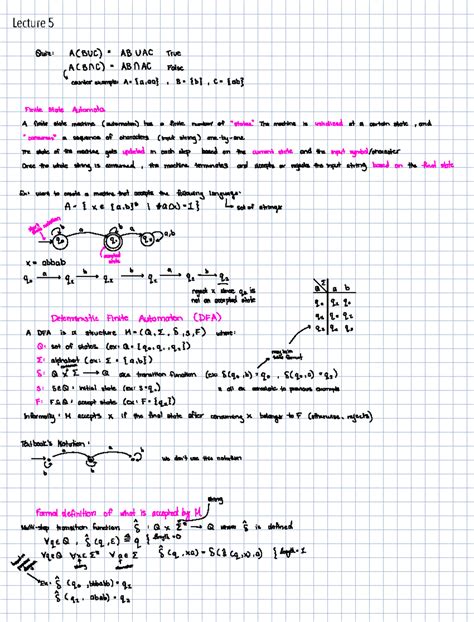 Lecture 5
Quiz: A(BUC) = AB U AC True
A(B∩C) = AB ∩ AC False
counter example: A = {a, aa}, B = {b}, C = {ab}
Finite State Automata
A finite state machine (automaton) has a finite number of "states" The machine is initialized at a certain state, and
"consumes" a sequence of characters (input string) one-by-one.
The state of the machine gets updated in each step based on the current state and the input symbol/character
Once the whole string is consumed, the machine terminates and accepts or rejects the input string based on the final state
Ex: want to create a machine that accepts the following language:
A = { x ∈ {a,b}* | #a(x) = 1 }
set of strings
start notation
b a b a a,b
q₀ q₁ q₂
accepted state
x = abbab
q₀ a q₁ b q₁ b q₁ a q₂ b q₂
reject x since q₂ is
not an accepted state
Σ
Q a b
q₀ q₁ q₀
q₁ q₂ q₁
q₂ q₂ q₂
Deterministic Finite Automaton (DFA)
A DFA is a structure M = (Q, Σ, δ, s, F) where:
Q: set of states (ex: Q = {q₀, q₁, q₂})
Σ: alphabet (ex: Σ = {a,b})
δ: Q × Σ → Q aka transition function (ex: δ(q₀, b) = q₀, δ(q₀, a) = q₁)
s: s∈Q: initial state (ex: s = q₀)
F: F⊆Q: accept states (ex: F = {q₁})
Informally: M accepts x if the final state after consuming x belongs to F (otherwise, rejects)
Textbook's Notation:
b a b a b
We don't use this notation
Formal definition of what is accepted by M
string
Multi-step transition function δ̂ : Q × Σ* → Q where δ̂ is defined
∀q∈Q, δ̂(q, ε) = q } length = 0
∀q∈Q ∀x∈Σ* ∀a∈Σ δ̂(q, xa) = δ(δ̂(q,x), a) } length = 1
string
Ex: δ̂(q₀, bbabb) = q₁
δ̂(q₁, abab) = q₂